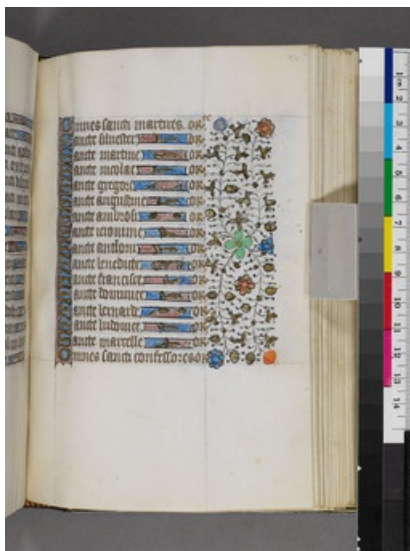 Omnes sancti martires. or
Sancte silvester or
Sancte martine or
Sancte nicolae or
Sancte gregori or
Sancte augustine or
Sancte ambrosi or
Sancte ieronime or
Sancte anthoni or
Sancte benedicte or
Sancte francisce or
Sancte dominice or
Sancte bernarde or
Sancte ludovice or
Sancte marcelle or
Omnes sancti confessores or